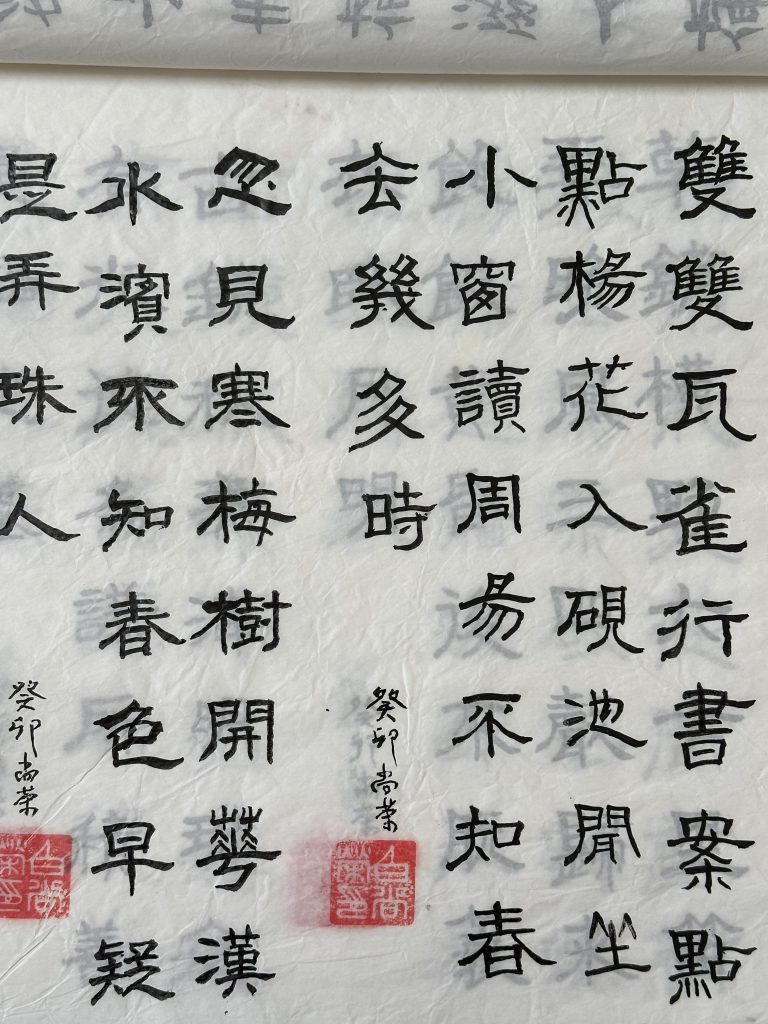 雙雙瓦雀行書案點
點楊花入硯池閒坐
小窗讀周易不知春
去幾多時
癸卯尚榮
白尚榮印
忽見寒梅樹開華漢
水濱不知春色早疑
是弄珠人
癸卯尚榮
白尚榮印